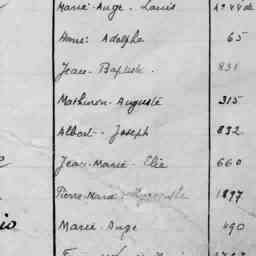 Marie-Ange. Louis
Aimé: Adolphe 65
Jean-Baptiste. 831
Mathurin-Auguste 315
Albert-Joseph 832
Jean-Marie-Elie 660
Pierre-Marie 1897
Marie-Ange 490